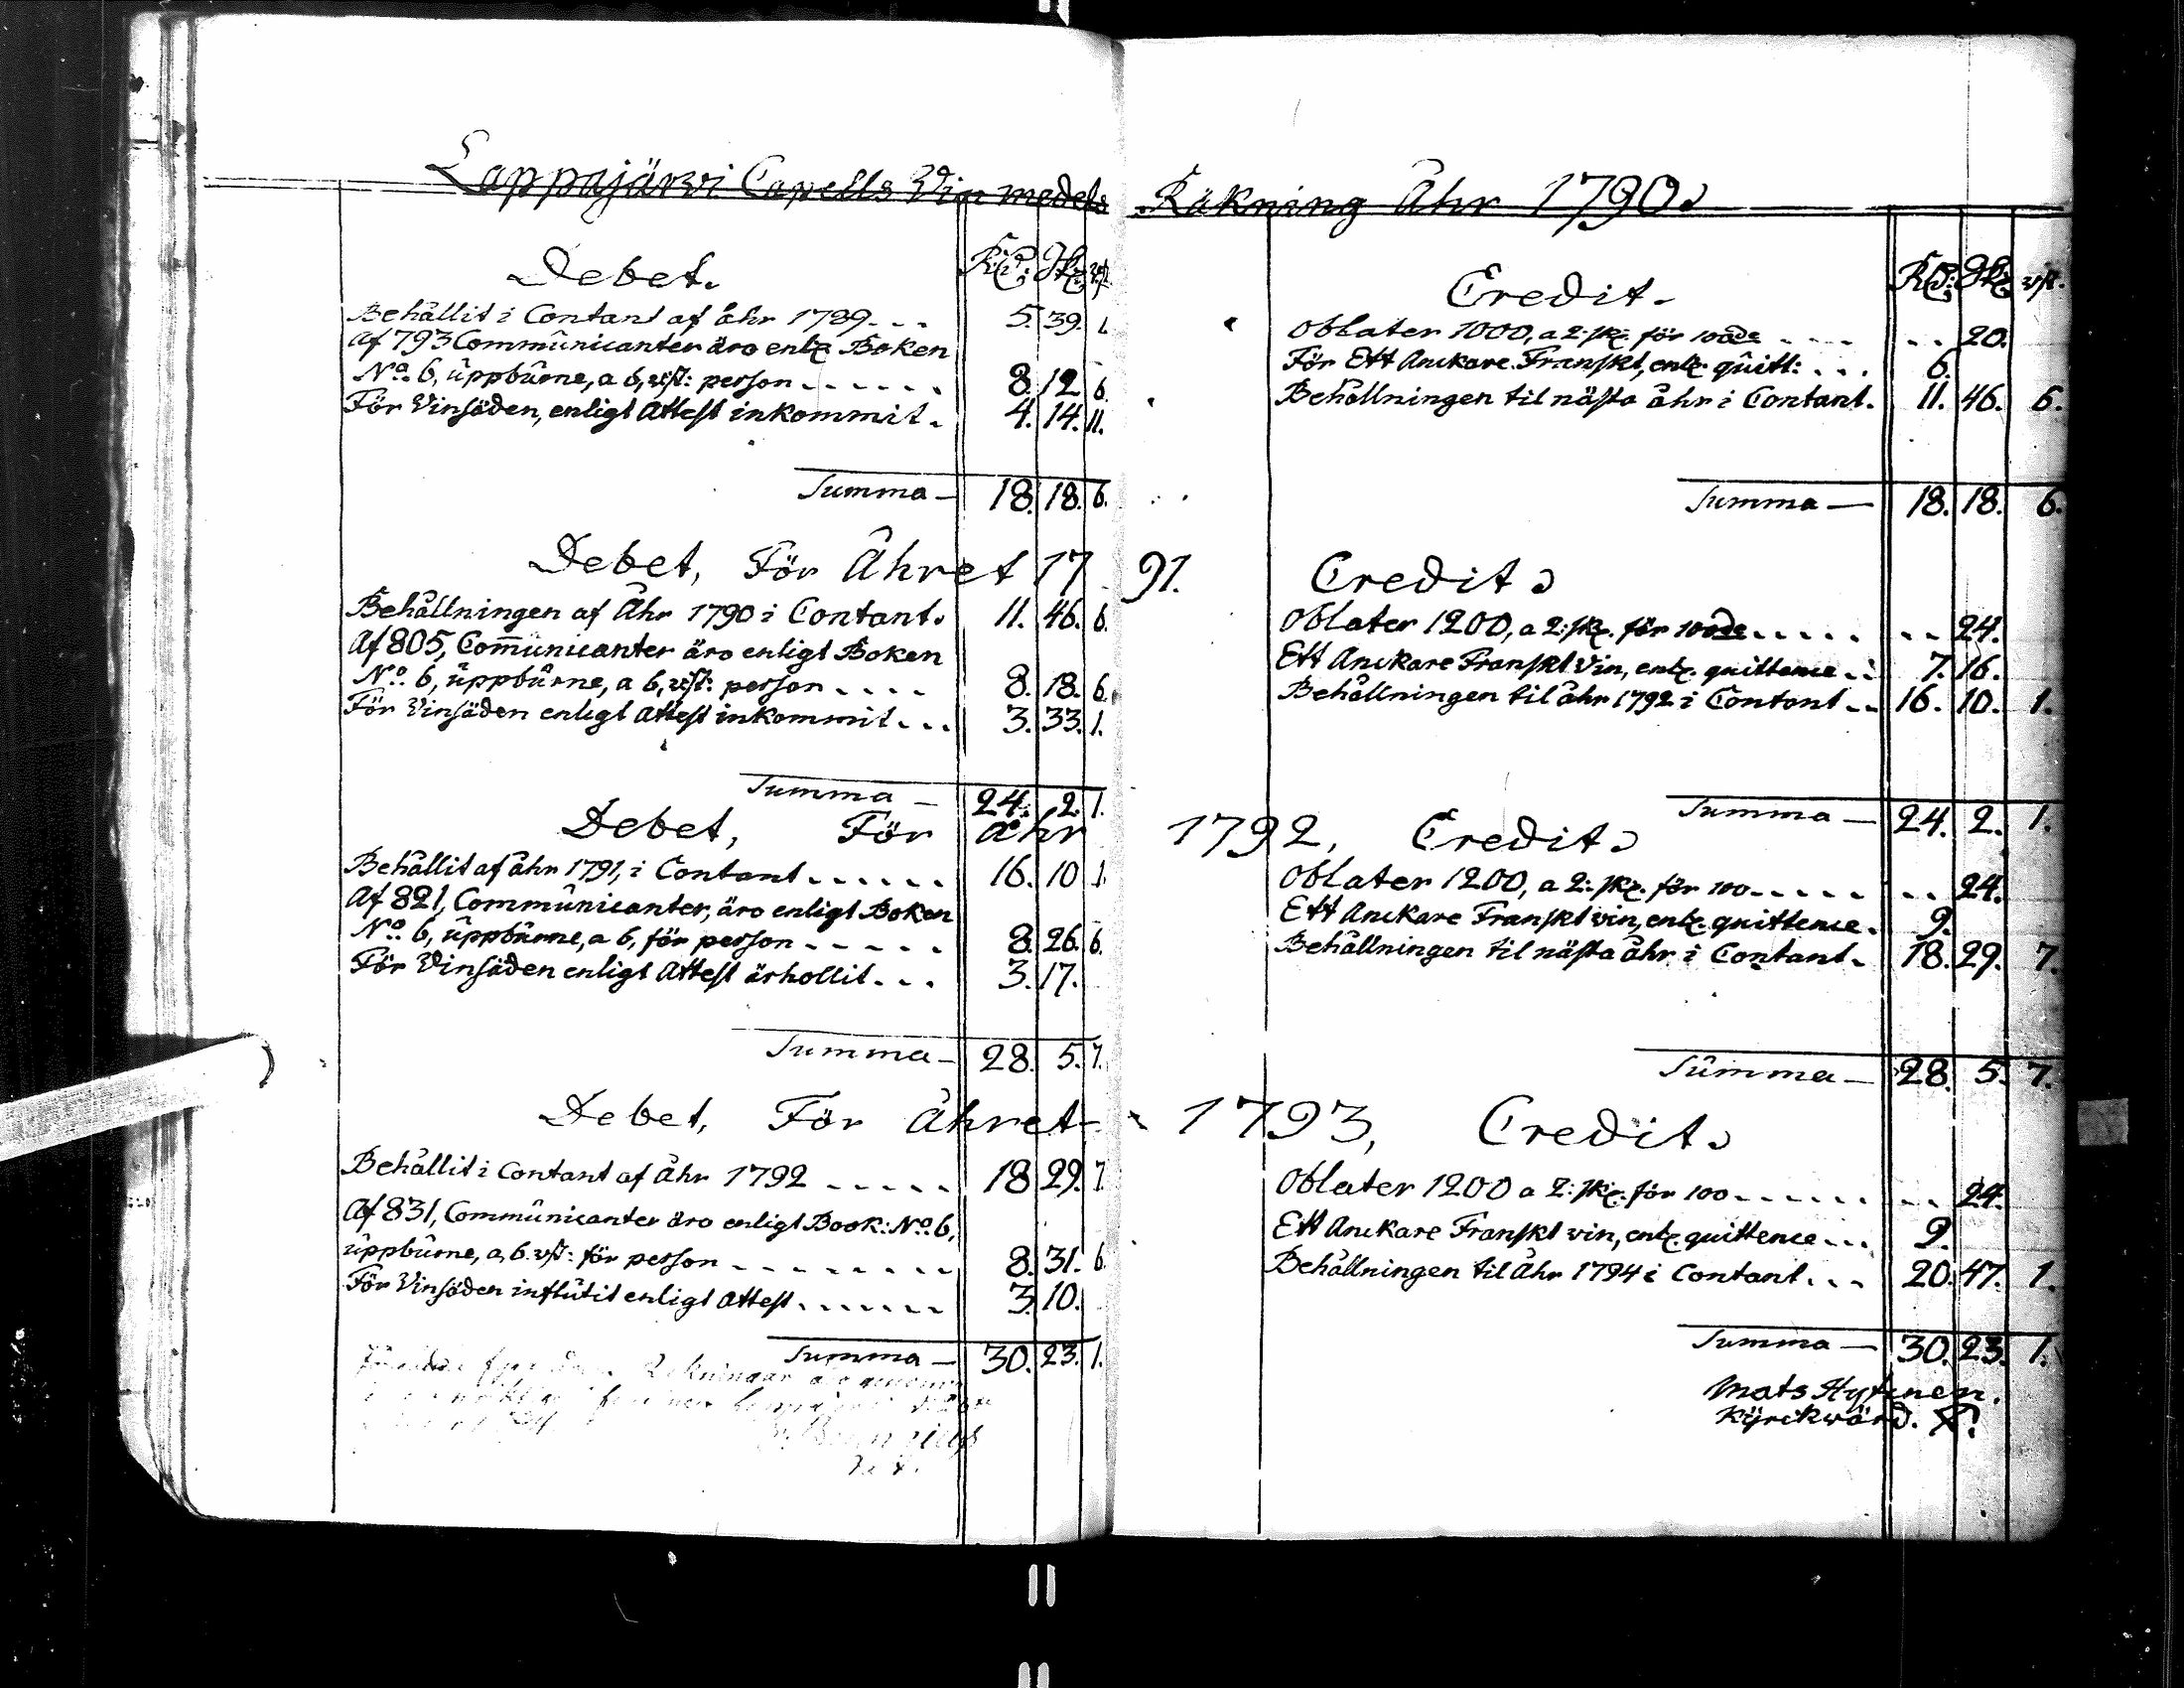 Lappajärwi Capells Vin medels Räkning Åhr 1790.
Debet.
Rd: Sk: rst.
Behållit i Contant af åhr 1789 - - - 5. 39. 1.
Af 793 Communicanter äro enl. Boken
No. 6, uppburne, a 6, rst: person - - - - - - 8. 12. 6.
För Vinsäden, enligt Attest inkommit. 4. 14. 11.
Summa — 18. 18. 6.
Credit.
Rd: Sk: rst.
Oblater 1000, a 2: sk. för 100de - - - - - - 20.
För Ett Anckare Franskt, enl. quitt: . . . 6.
Behållningen til nästa åhr i Contant. 11. 46. 6.
Summa — 18. 18. 6.
Debet, För Åhret 1791. Credit.
Behållningen af Åhr 1790 i Contant. 11. 46. 6.
Af 805, Com̅unicanter äro enligt Boken
No. 6, uppburne, a 6, rst: person - - - - 8. 18. 6.
För Vinsäden enligt Attest inkommit . . . 3. 33. 1.
Summa — 24. 2. 1.
Oblater 1200, a 2: sk. för 100de - - - - - - - 24.
Ett Anckare Franskt Vin, enl. quittence . . 7. 16.
Behållningen til åhr 1792 i Contant - - 16. 10. 1.
Summa — 24. 2. 1.
Debet, För åhr 1792, Credit.
Behållit af åhr 1791, i Contant . . . . . . 16. 10. 1.
Af 821, Communicanter, äro enligt Boken
No. 6, uppburne, a 6, för person - - - - - 8. 26. 6.
För Vinsäden enligt Attest ärhollit . . . 3. 17.
Summa — 28. 5. 7.
Oblater 1200, a 2: sk. för 100 - - - - - - - 24.
Ett Anckare Franskt vin, enl. quittence. 9.
Behållningen til nästa åhr i Contant. 18. 29. 7.
Summa — 28. 5. 7.
Debet, För Åhret - 1793, Credit.
Behållit i Contant af Åhr 1792 - - - - - 18 29. 7.
Af 831, Communicanter äro enligt Book: No. 6,
uppburne, a, 6. rst: för person - - - - - - - - 8. 31. 6.
För Vinsäden influtit enligt Attest . . . . . . . 3. 10.
Summa — 30. 23. 1.
Oblater 1200 a 2: sk. för 100 - - - - - - - - 24.
Ett Anckare Franskt vin, enl. quittence - - . 9.
Behållningen til Åhr 1794 i Contant . . . 20. 47. 1.
Summa — 30. 23. 1.
Mats Hytinen.
Kyrckwärd.